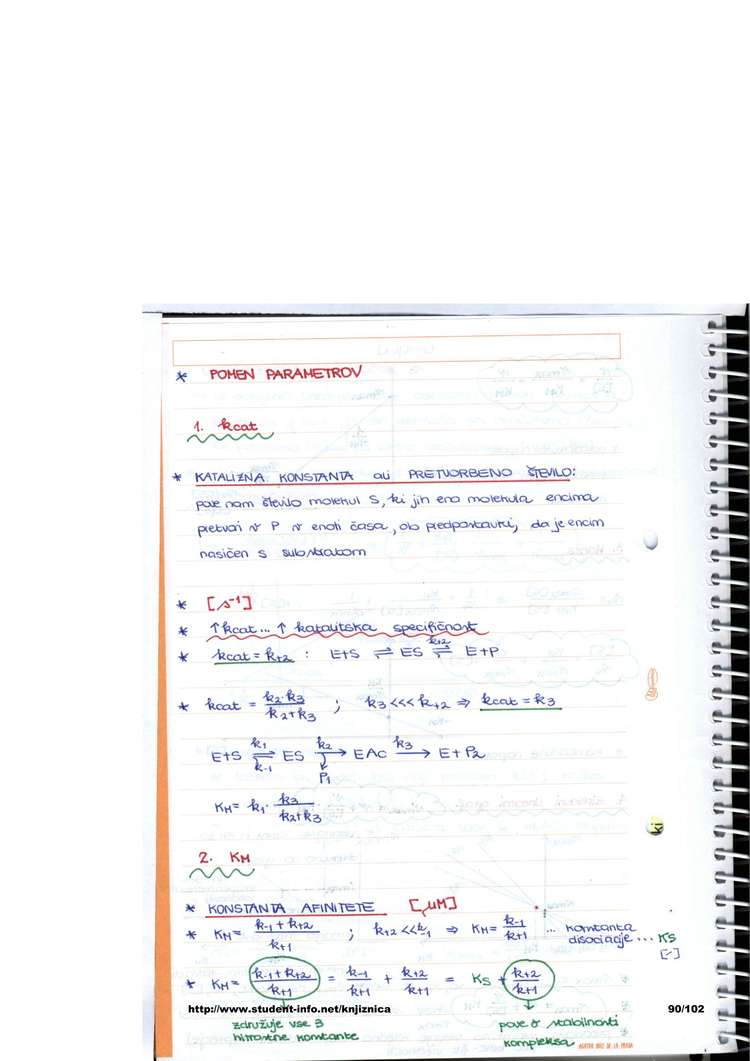 * POMEN PARAMETROV
1. kcat
* KATALIZNA KONSTANTA ali PRETVORBENO ŠTEVILO:
pove nam število molekul S, ki jih ena molekula encima
pretvori v P v enoti časa, ob predpostavki, da je encim
nasičen s substratom
* [s⁻¹]
* ↑kcat... ↑ katalitska specifičnost
* kcat = k+2 : E+S ⇌ ES ⇌ E+P
k+2
* kcat = k2·k3 / k2+k3 ; k3 <<< k+2 ⇒ kcat = k3
E+S ⇌ ES → EAc → E+P2
k1 k-1 k2 k3
P1
KM = k1 · k3 / k2+k3
2. KM
* KONSTANTA AFINITETE [μM]
* KM = k-1 + k+2 / k+1 ; k+2 << k-1 ⇒ KM = k-1 / k+1 ... konstanta disociacije ... KS
[-]
* KM = k-1 + k+2 / k+1 = k-1 / k+1 + k+2 / k+1 = KS + k+2 / k+1
http://www.student-info.net/knjiznica 90/102
združuje vse 3 hitrostne konstante
pove o stabilnosti kompleksa
AGATHA RUIZ DE LA PRADA